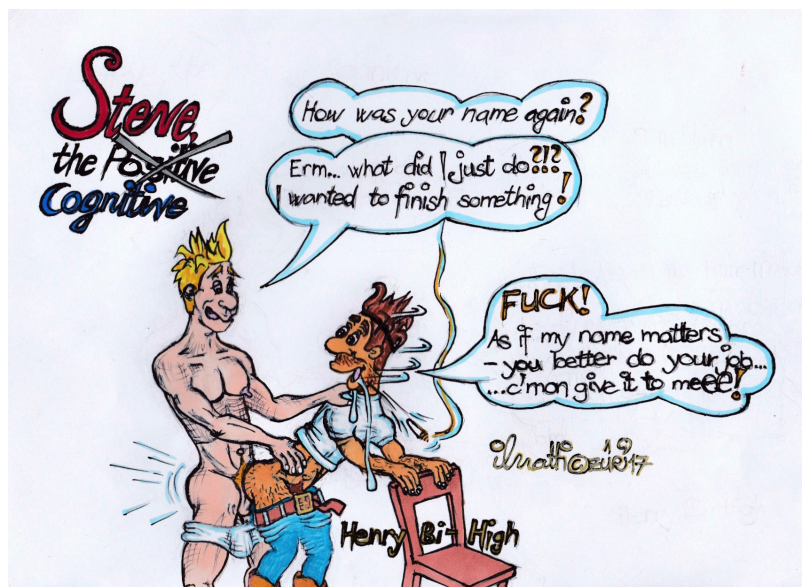 Steve,
the Positive
Cognitive
How was your name again?
Erm... what did I just do?!?
I wanted to finish something!
FUCK!
As if my name matters
- you better do your job...
...c'mon give it to meeee!
©ZÜRI'17
Henry Bi-High